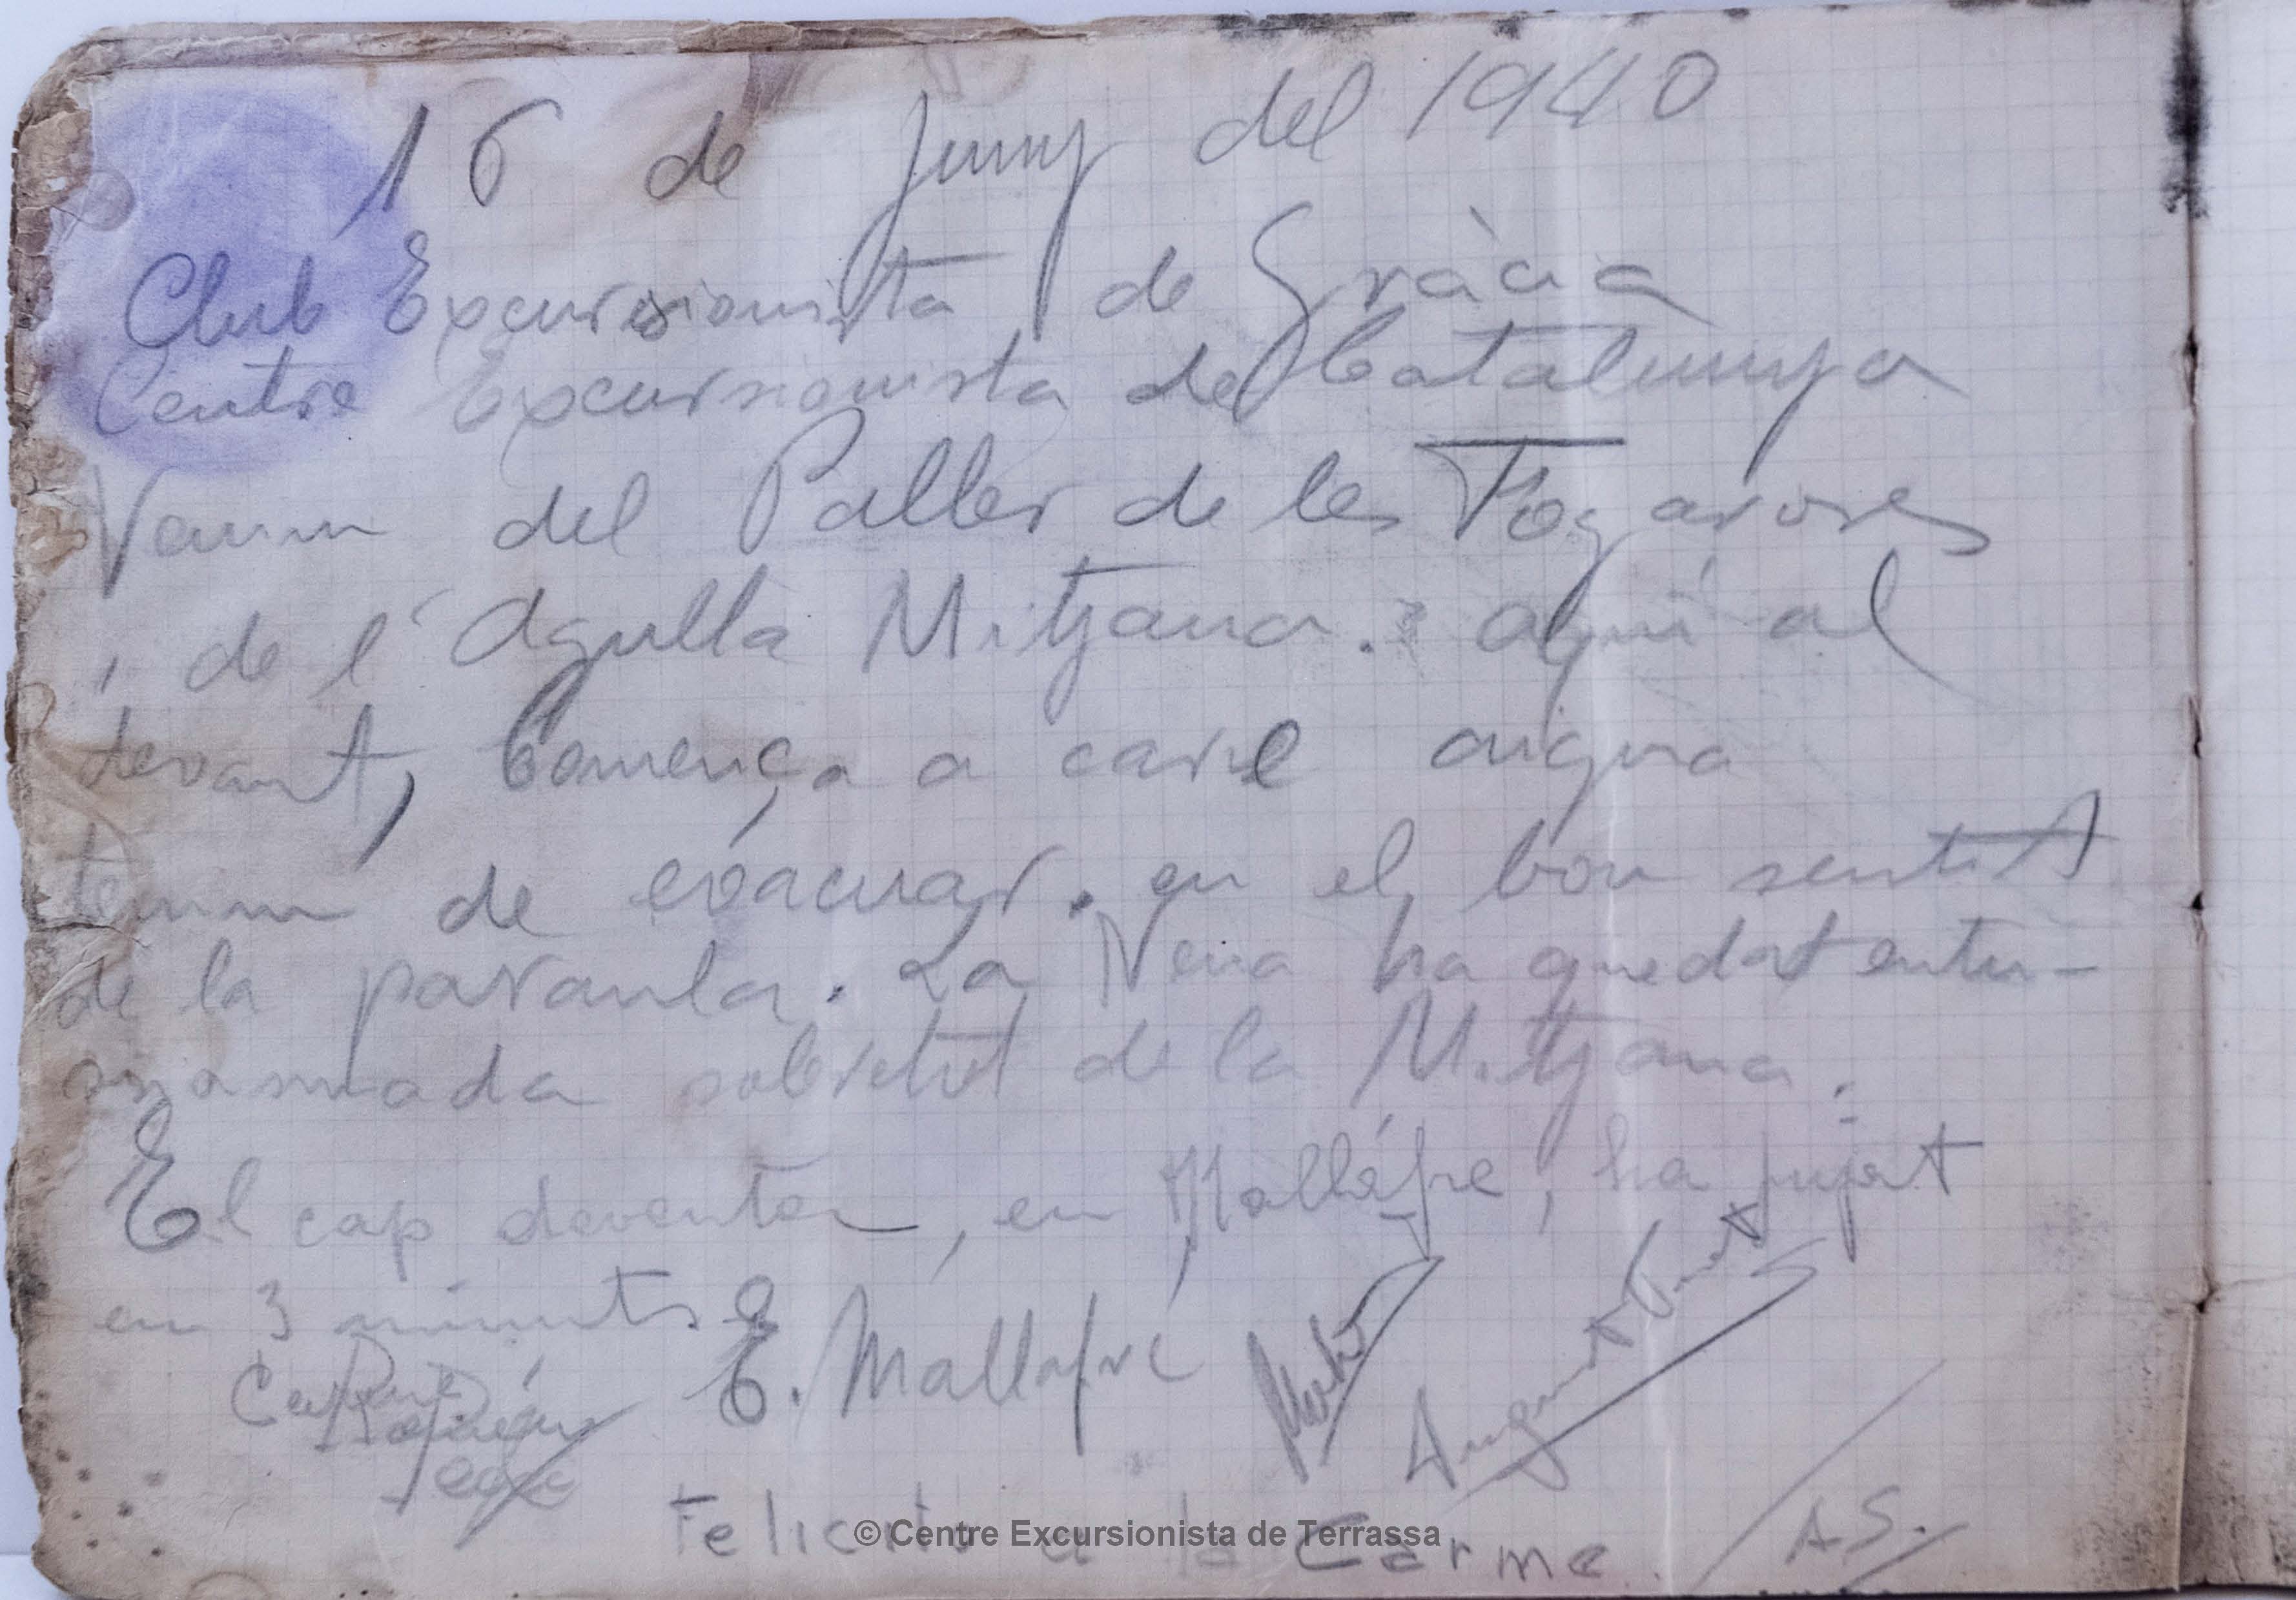 16 de Juny del 1940
Club Excursionista de Gràcia
Centre Excursionista de Catalunya
Venim del Paller de les Fogaroses
i de l'Agulla Mitjana. aquí al
devant, Comença a caure aigua
tenim de evacuar. en el bon sentit
de la paraula. La Nena ha quedat entu-
siasmada sobretot de la Mitjana.
El cap devanter, en Mallafré, ha pujat
en 3 minuts.
E. Mallafré
August
Felicito a la Carme
A.S.
© Centre Excursionista de Terrassa